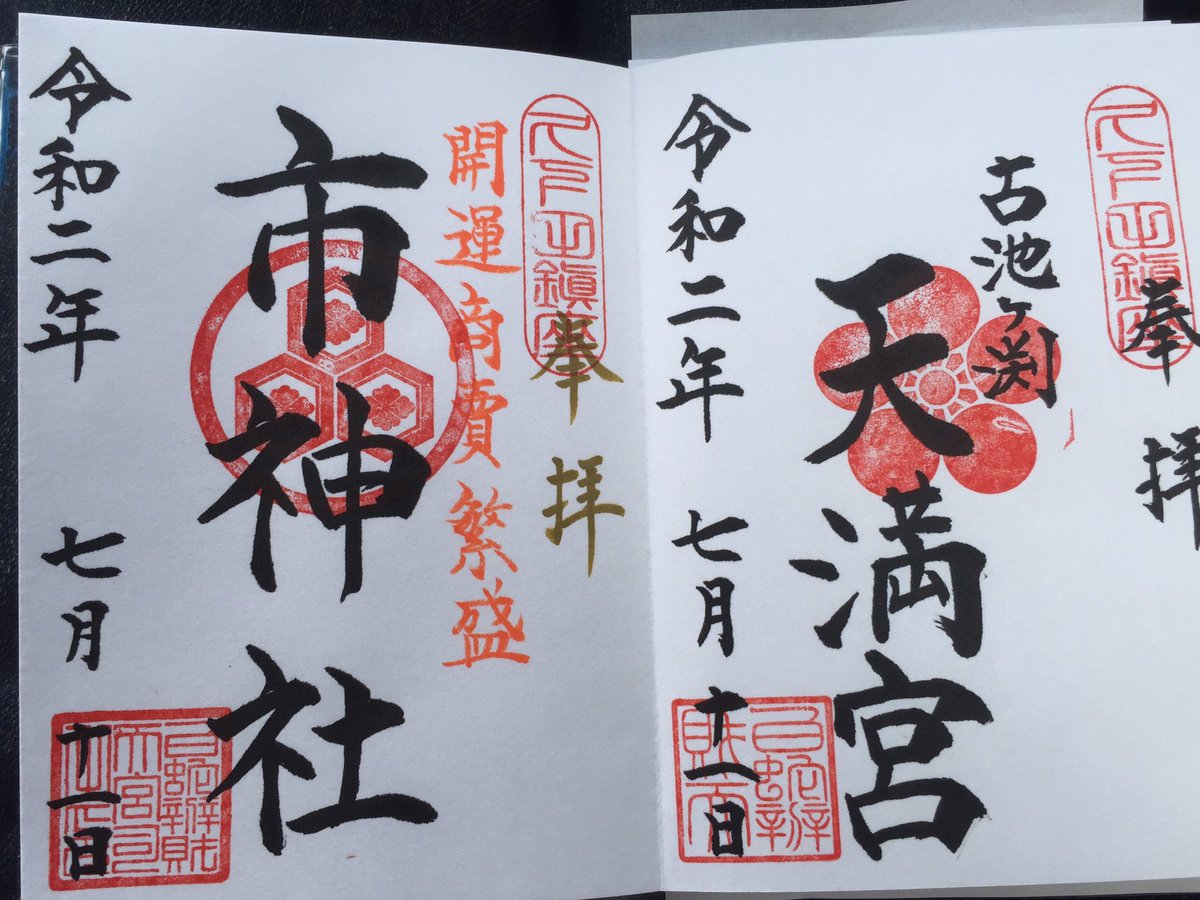 奉拝
古池ヶ渕
天満宮
令和二年 七月 十一日
奉拝
開運商賣繁盛
市神社
令和二年 七月 十一日